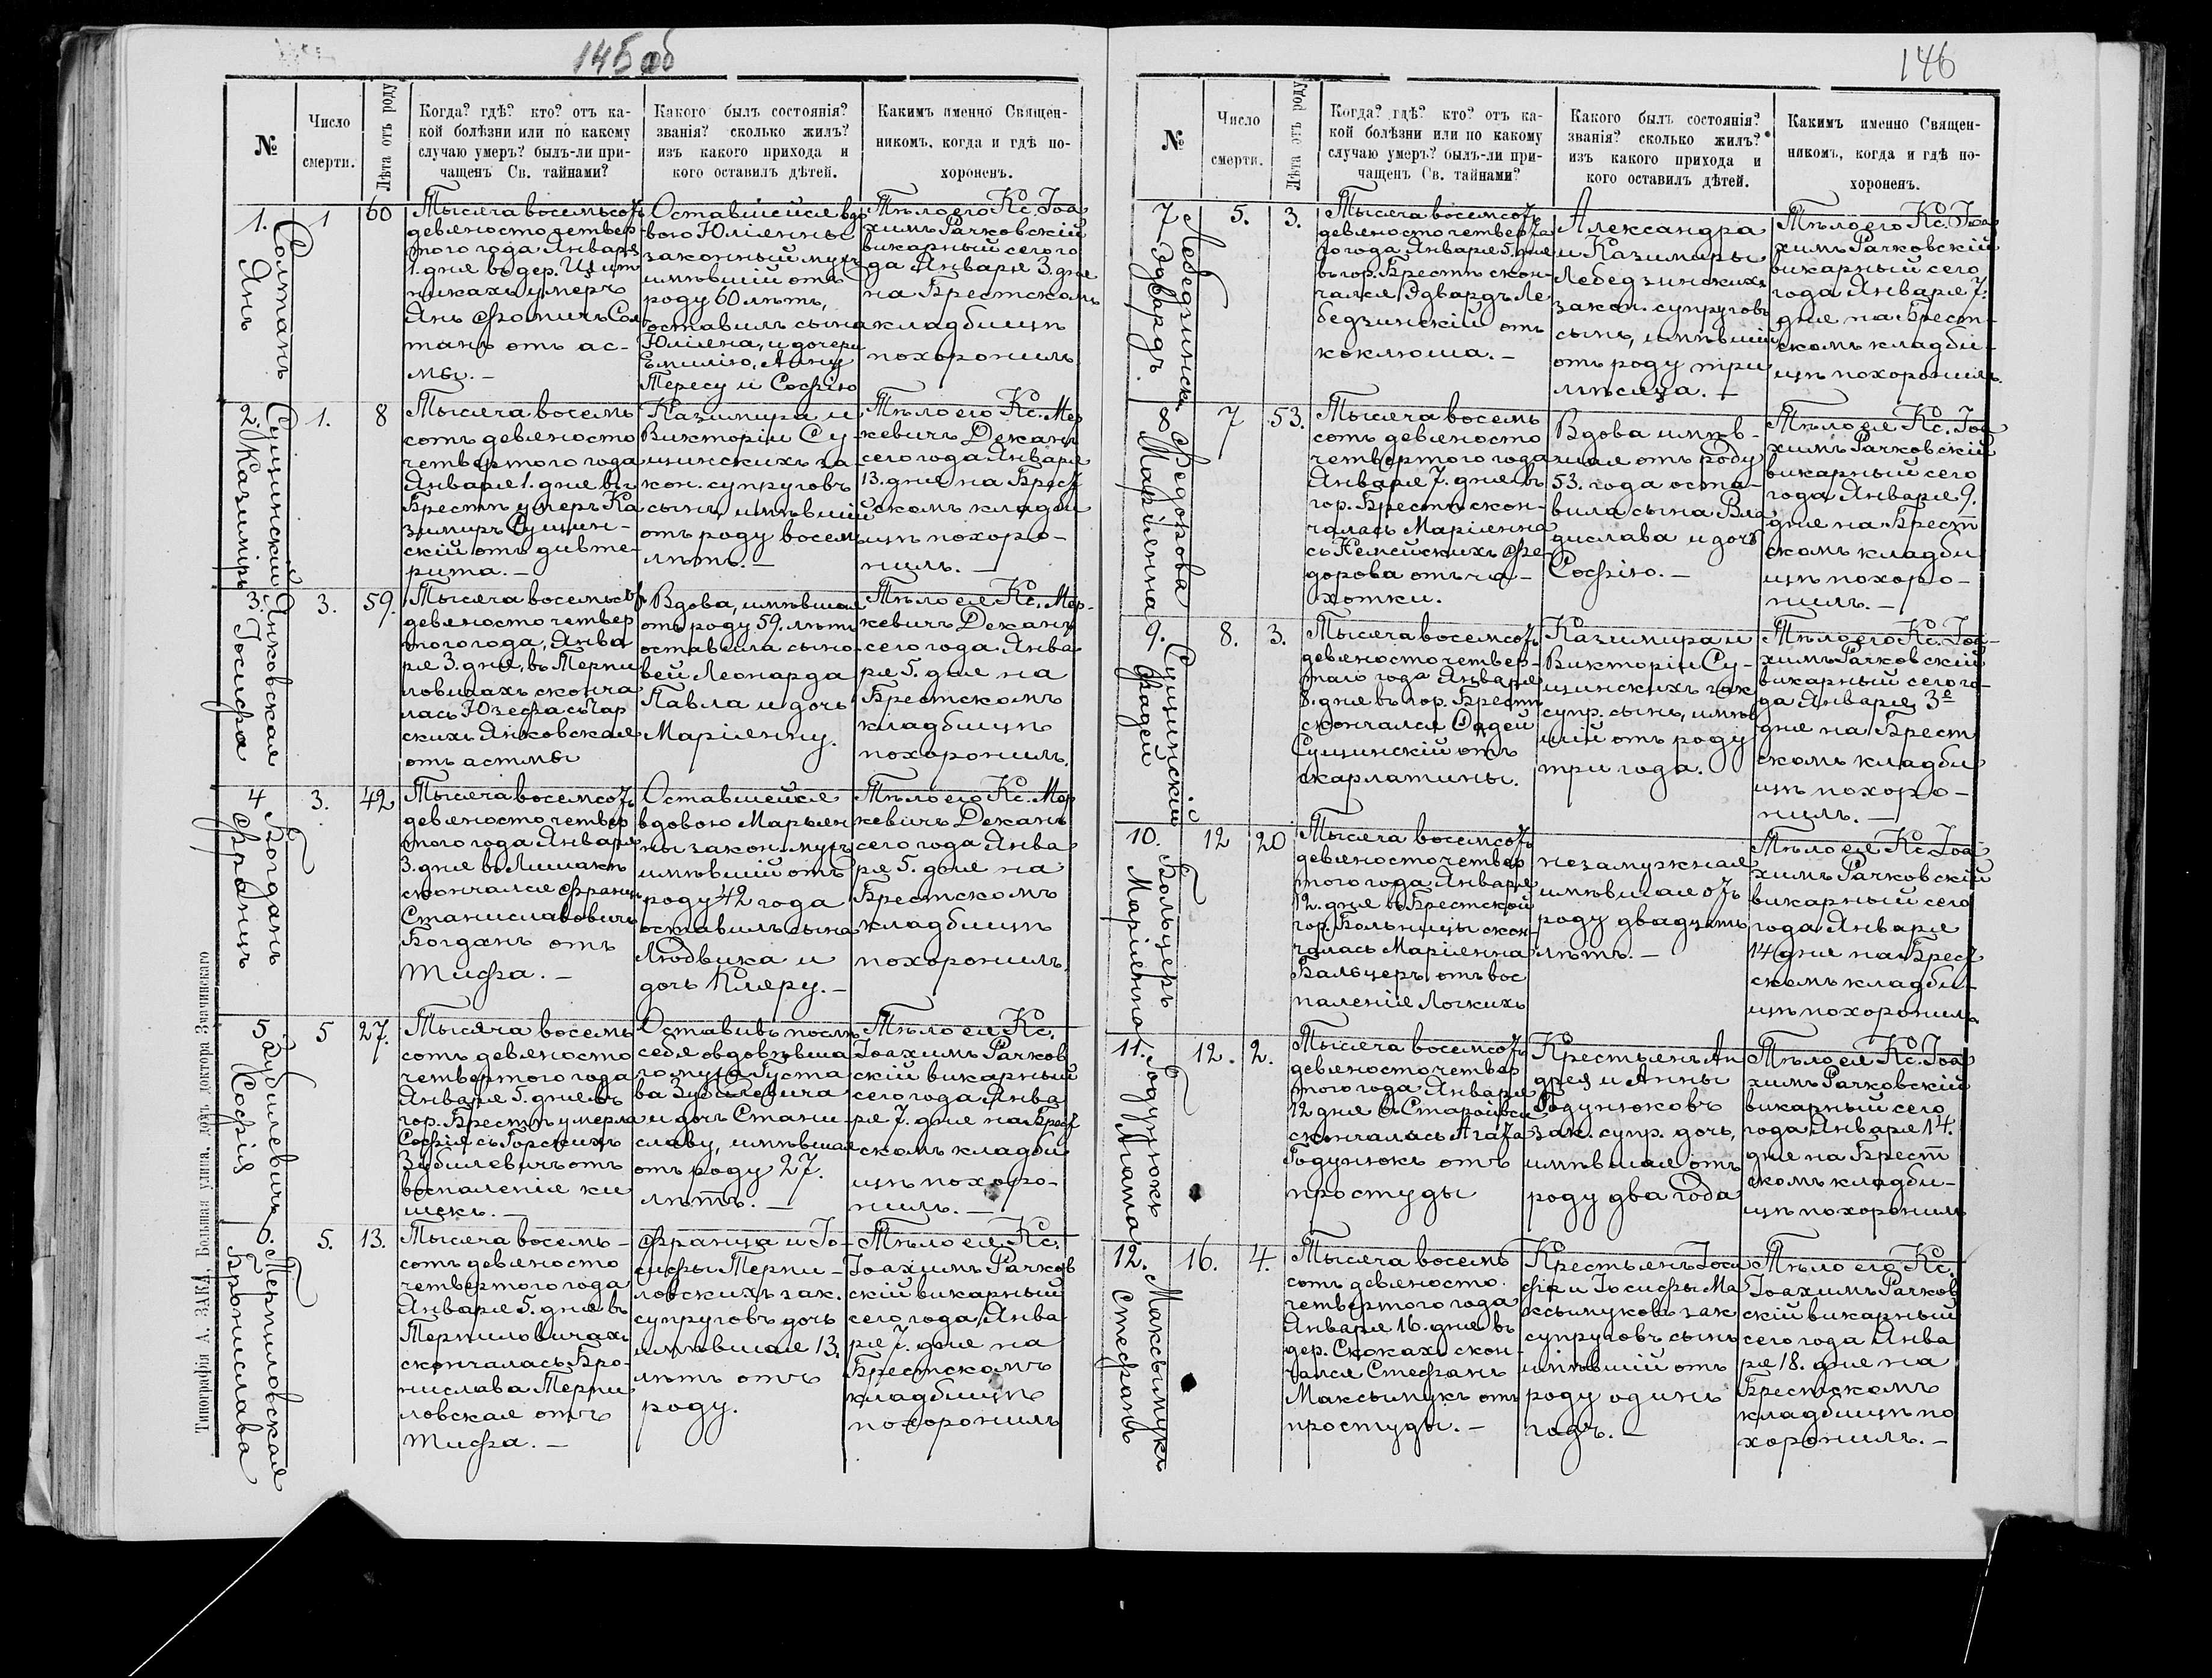 145 об
№
Число
смерти.
Лѣта отъ роду
Когда? гдѣ? кто? отъ ка-
кой болѣзни или по какому
случаю умеръ? былъ-ли при-
чащенъ Св. тайнами?
Какого былъ состоянія?
званія? сколько жилъ?
изъ какого прихода и
кого оставилъ дѣтей.
Какимъ именно Священ-
никомъ, когда и гдѣ по-
хороненъ.
1.
Солтанъ
Янъ
1
60
Тысяча восемьсотъ
девяносто четвер
того года Января
1. дня въ дер.
никахъ умеръ
Янъ Фомичъ Сол
танъ отъ ас-
мы. —
Оставшейся вдо
вою Юліянны
законный мужъ
имѣвшій отъ
роду 60 лѣтъ,
оставилъ сына
Юліяна, и дочери
Емилію, Анну
Тересу и Софію
Тѣло его Кс. Іоа
химъ Рачковскій
викарный сего го
да Января 3. дня
на Брестскомъ
кладбищѣ
похоронилъ
2.
Сущинскій
Казиміръ
1.
8
Тысяча восемь
сотъ девяносто
четвертого года
Января 1. дня въ г.
Брестѣ умеръ Ка
зимиръ Сущин-
скій отъ дивте-
рита. —
Казимира и
Викторіи Су-
щинскихъ за-
кон. супруговъ
сынъ, имѣвшій
отъ роду восемь
лѣтъ. —
Тѣло его Кс. Мер
кевичъ Деканъ
сего года Января
13. дня на Брест
скомъ кладби
щѣ похоро-
нилъ. —
3.
Янковская
Іосифа
3.
59.
Тысяча восемьсотъ
девяносто четвер
того года, Янва
ря 3. дня, въ Терпи
ловичахъ сконча
лась Юзефа съ Чар
скихъ Янковская
отъ астмы
Вдова, имѣвшая
отъ роду 59. лѣтъ
оставила сыно-
вей Леонарда
Павла и дочь
Маріянну.
Тѣло ея Кс. Мер-
кевичъ Деканъ
сего года Янва
ря 5. дня на
Брестскомъ
кладбищѣ
похоронилъ.
4
Богданъ
Францъ
3.
42
Тысяча восемсотъ
девяносто четвер
того года Января
3. дня въ
скончался Францъ
Станиславовичъ
Богданъ отъ
тифа. —
Оставшейся
вдовою Марьян
ны закон. мужъ
имѣвшій отъ
роду 42 года
оставилъ сына
Людвика и
дочь Кляру. —
Тѣло его Кс. Мер
кевичъ Деканъ
сего года Янва
ря 5. дня на
Брестскомъ
кладбищѣ
похоронилъ.
5
Зубилевичъ
Софія
5
27.
Тысяча восемь
сотъ девяносто
четвертого года
Января 5. дня въ
гор. Брестѣ умерла
Софія съ Горскихъ
Зубилевичъ отъ
воспаленія ки
шекъ. —
Оставивъ послѣ
себя овдовѣвша
го мужа Густа
ва Зубилевича
и дочь Стани-
славу, имѣвшая
отъ роду 27.
лѣтъ. —
Тѣло ея Кс.
Іоахимъ Рачков
скій викарный
сего года Янва
ря 7. дня на Брест
скомъ кладби
щѣ похоро-
нилъ. —
6.
Терпиловская
Бронислава
5.
13.
Тысяча восемь-
сотъ девяносто
четвертого года
Января 5. дня въ
Терпиловичахъ
скончалась Бро-
нислава Терпи
ловская отъ
тифа. —
Франца и Іо-
сифы Терпи-
ловскихъ зак.
супруговъ дочь
имѣвшая 13.
лѣтъ отъ
роду.
Тѣло ея Кс.
Іоахимъ Рачков
скій викарный
сего года Янва
ря 7. дня на
Брестскомъ
кладбищѣ
похоронилъ
Типографія А. ЗАКА, Большая улица, домъ доктора Значинскаго
146
№
Число
смерти.
Лѣта отъ роду
Когда? гдѣ? кто? отъ ка-
кой болѣзни или по какому
случаю умеръ? былъ-ли при-
чащенъ Св. тайнами?
Какого былъ состоянія?
званія? сколько жилъ?
изъ какого прихода и
кого оставилъ дѣтей.
Какимъ именно Священ-
никомъ, когда и гдѣ по-
хороненъ.
7
Лебедзинскій
Эдвардъ
5.
3.
Тысяча восемсотъ
девяносто четверта
го года Января 5. дня
въ гор. Брестѣ скон-
чался Эдвардъ Ле
бедзинскій отъ
коклюша. —
Александра
и Казимиры
Лебедзинскихъ
закон. супруговъ
сынъ, имѣвшій
отъ роду три
мѣсяца. —
Тѣло его Кс. Іоа
химъ Рачковскій
викарный сего
года Января 7.
дня на Брест-
скомъ кладби-
щѣ похоронилъ.
8
Федорова
Маріянна
7
53.
Тысяча восемь
сотъ девяносто
четвертого года
Января 7. дня въ
гор. Брестѣ скон-
чалась Маріянна
съ Фе-
дорова отъ ча-
хотки.
Вдова имѣв-
шая отъ роду
53. года оста-
вила сына Вла
дислава и дочь
Софію. —
Тѣло ея Кс. Іоа
химъ Рачковскій
викарный сего
года Января 9.
дня на Брест
скомъ кладби
щѣ похоро-
нилъ. —
9.
Сущинскій
Фадей
8.
3.
Тысяча восемсотъ
девяносто четвер-
таго года Января
8. дня въ гор. Брестѣ
скончался Фадей
Сущинскій отъ
скарлатины.
Казимира и
Викторіи Су-
щинскихъ зак
супр. сынъ, имѣв
шій отъ роду
три года.
Тѣло его Кс. Іоа-
химъ Рачковскій
викарный сего го-
да Января 3е
дня на Брест
скомъ кладби
щѣ похоро-
нилъ. —
10.
Больцеръ
Маріянна
12
20
Тысяча восемсотъ
девяносто четвер
того года Января
12. дня въ Брестской
гор. Больницы скон-
чалась Маріянна
Бальцеръ, отъ вос
паленіе Легкихъ
незамужная
имѣвшая отъ
роду двадцать
лѣтъ. —
Тѣло ея Кс. Іоа-
химъ Рачковскій
викарный сего
года Января
14 дня на Брест
скомъ кладби-
щѣ похоронилъ
11.
Годунюкъ
Агата
12.
2.
Тысяча восемсотъ
девяносто четвер
того года Января
12 дня въ
скончалась Агата
Годунюкъ отъ
простуды
Крестьянъ Ан
дрея и Анны
Годунюковъ
зак. супр. дочь,
имѣвшая отъ
роду два года
Тѣло ея Кс. Іоа
химъ Рачковскій
викарный сего
года Января 14.
дня на Брест
скомъ кладби-
щѣ похоронилъ
12.
Максымукъ
Стефанъ
16.
4.
Тысяча восемь
сотъ девяносто
четвертого года
Января 16. дня въ
дер. Скокахъ скон-
чался Стефанъ
Максымукъ отъ
простуды. —
Крестьянъ Іоси
фа и Іосифы Ма
ксымуковъ зак
супруговъ сынъ
имѣвшій отъ
роду одинъ
годъ. —
Тѣло его Кс.
Іоахимъ Рачков
скій викарный
сего года Янва
ря 18. дня на
Брестскомъ
кладбищѣ по
хоронилъ. —